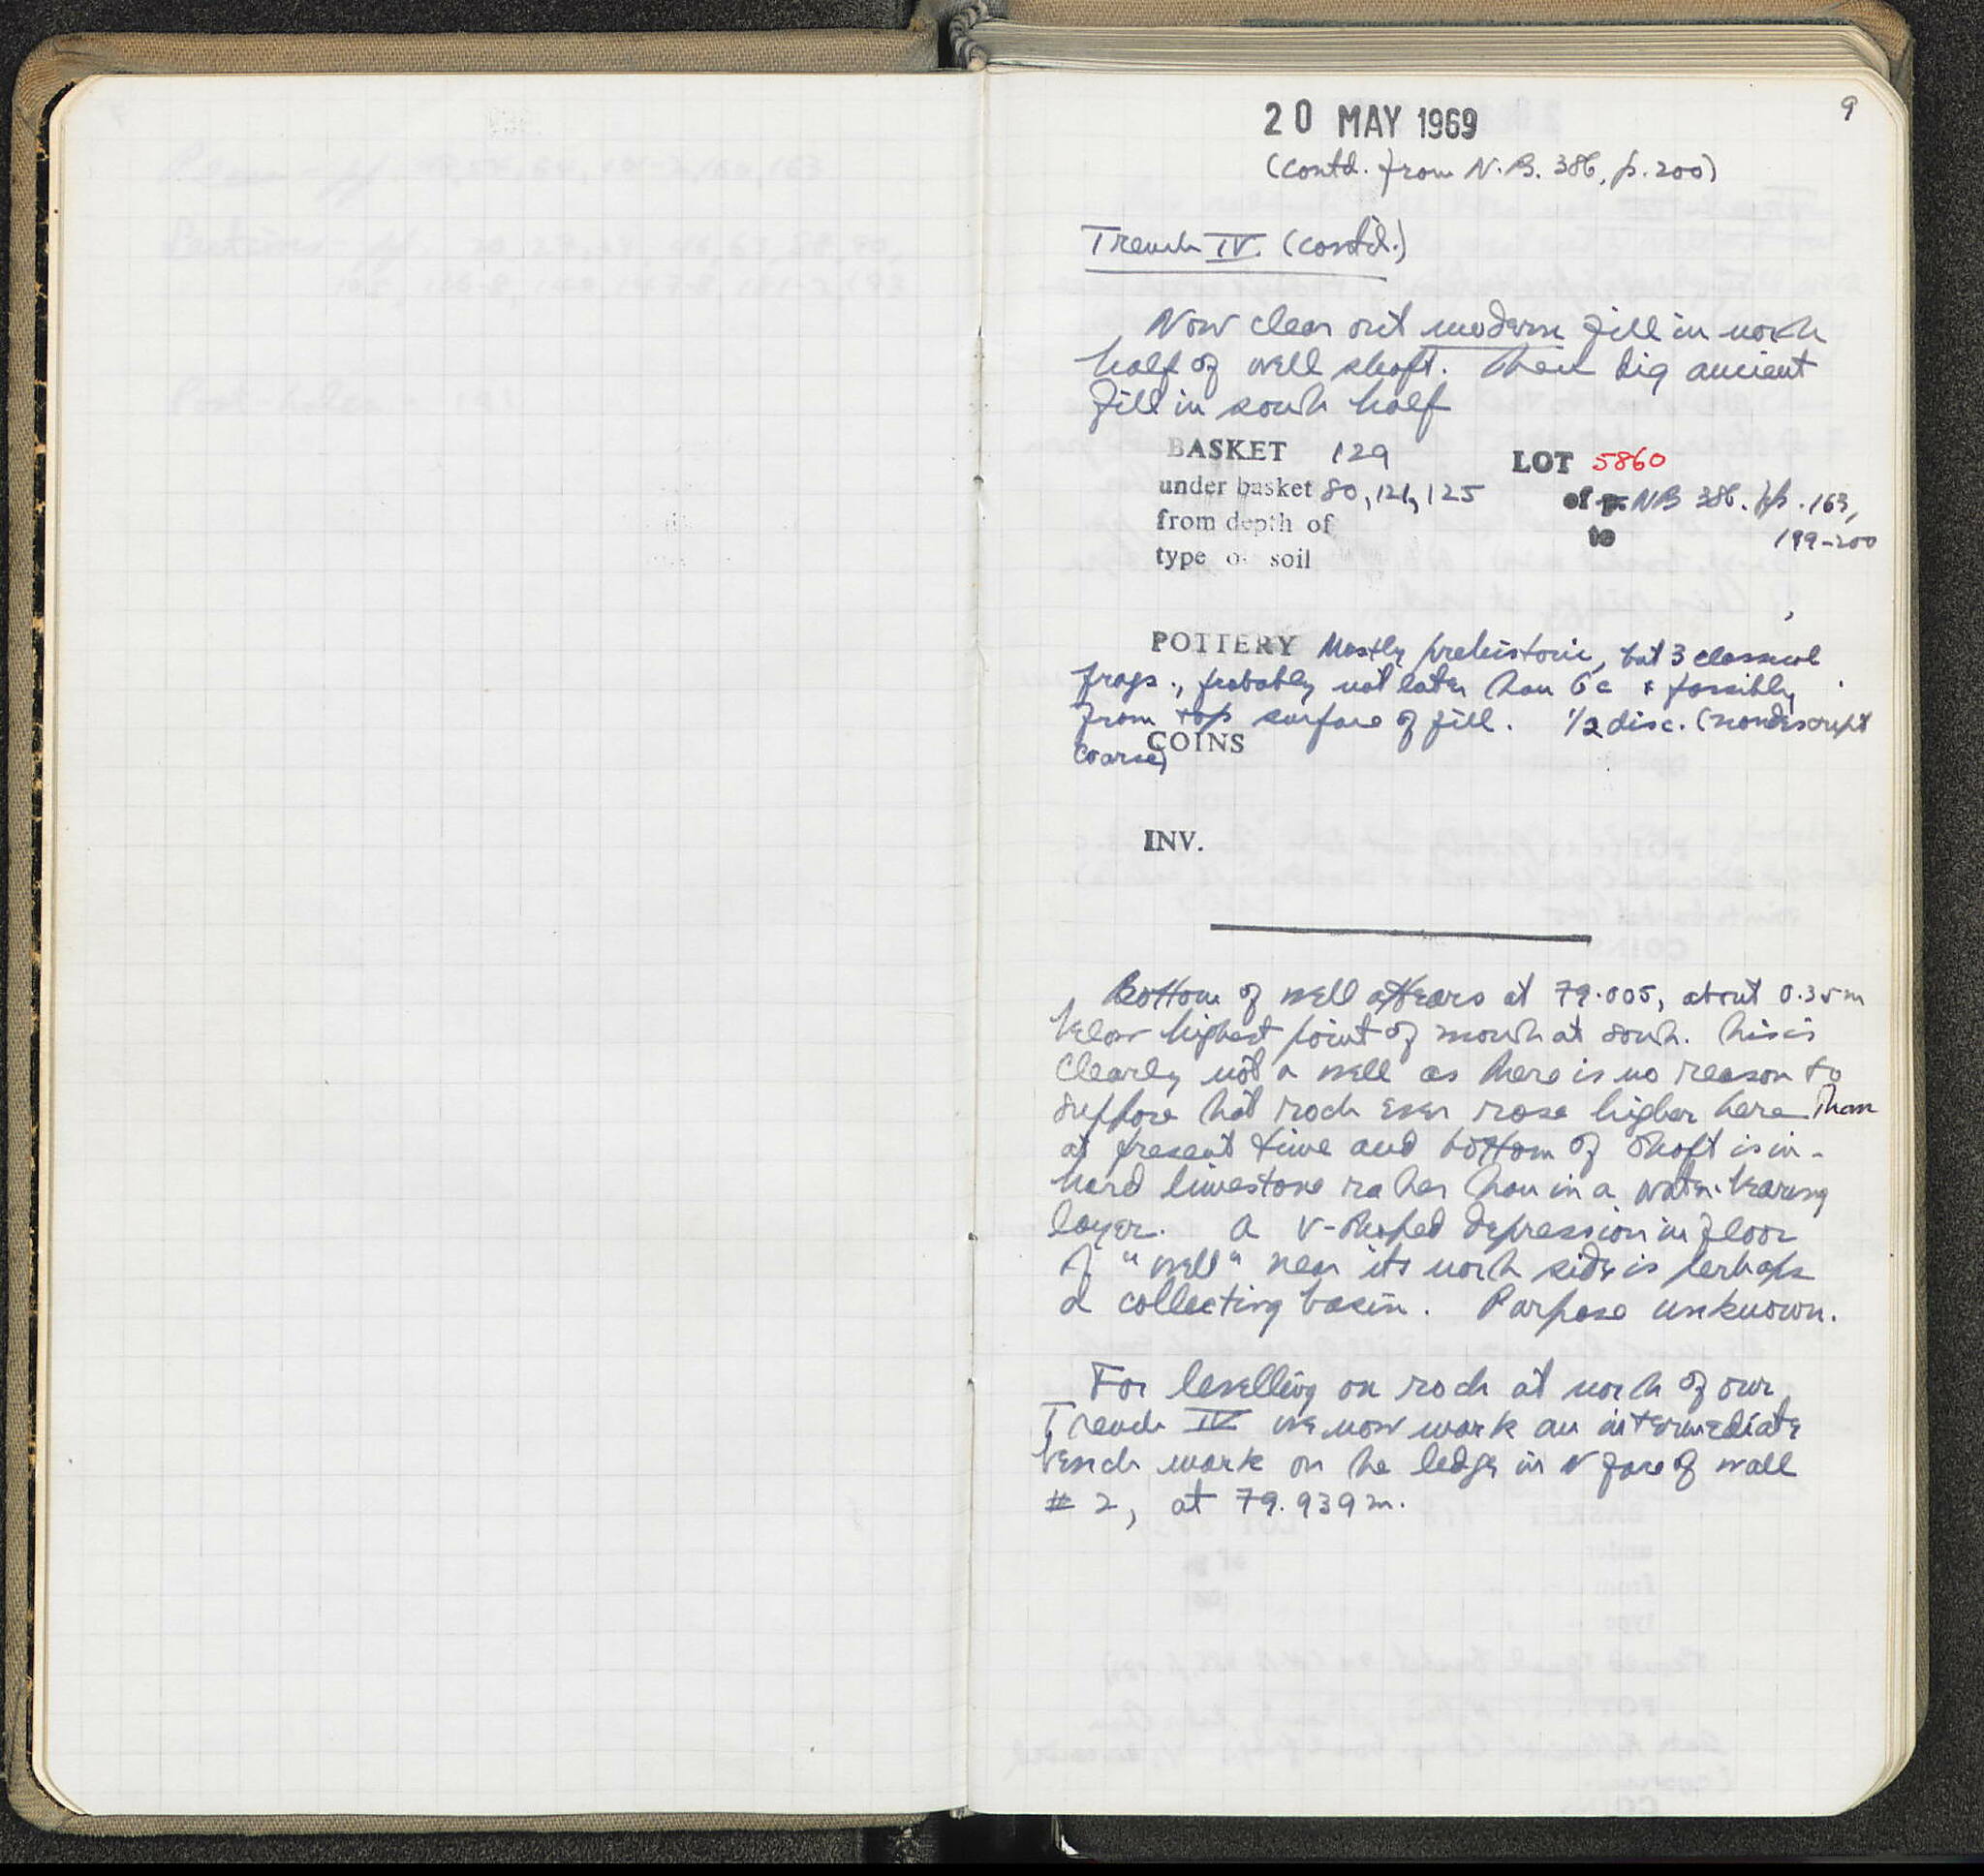 9
20 MAY 1969
(contd. from N.B. 386, p. 200)
Trench IV (contd.)
Now clean out modern fill in north
half of well shaft. Then dig ancient
fill in south half
BASKET 129 LOT 5860
under basket 80, 121, 125 of p. NB 386. pp. 163,
from depth of to 199-200
type of soil
POTTERY Mostly prehistoric, but 3 classical
frags., probably not later than 6c & possibly
from top surface of fill. 1/2 disc. (nondescript
coarse)
COINS
INV.
Bottom of well appears at 79.005, about 0.35m
below highest point of mouth at south. This is
clearly not a well as there is no reason to
suppose that rock ever rose higher here than
at present time and bottom of shaft is in
hard limestone rather than in a water-bearing
layer. A V-shaped depression in floor
of "well" near its north side is perhaps
a collecting basin. Purpose unknown.
For levelling on rock at north of our
Trench IV we now mark an intermediate
bench mark on the ledge in N face of wall
# 2, at 79.939m.